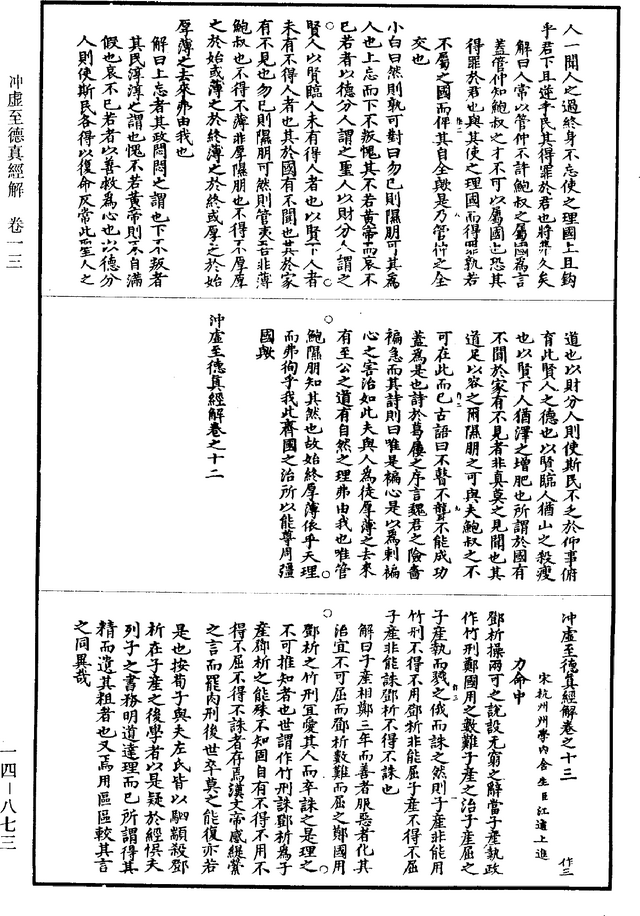 人一聞人之過終身不忘使之理國上且鈎
乎君下且逆乎民其得罪於君也將弗久矣
解曰人常以管仲不許鮑叔之屬國爲言
蓋管仲知鮑叔之才不可以屬國也恐其
得罪於君也與其使之理國而得罪孰若
不屬之國而俾其自全歟是乃管仲之全
交也
小白曰然則孰可對曰勿已則隰朋可其爲
人也上忘而下不叛愧其不若黃帝而哀不
已若者以德分人謂之聖人以財分人謂之
賢人以賢臨人未有得人者也以賢下人者
未有不得人者也其於國有不聞也其於家
有不見也勿已則隰朋可然則管夷吾非薄
鮑叔也不得不薄非厚隰朋也不得不厚厚
之於始或薄之於終薄之於終或厚之於始
厚薄之去來弗由我也
解曰上忘者其政悶悶之謂也下不叛者
其民淳淳之謂也愧不若黃帝則不自滿
假也哀不已若者以善救爲心也以德分
人則使斯民各得以復命反常此至人之
道也以財分人則使斯民不乏於仰事俯
育此賢人之德也以賢臨人猶山之殺瘦
也以賢下人猶澤之增肥也所謂於國有
不聞於家有不見者非真莫之見聞也其
道足以容之爾隰朋之可與夫鮑叔之不
可在此而已古語曰不瞽不聾不能成功
蓋爲是也詩於葛屨之序言魏君之險嗇
褊急而其詩則曰唯是褊心是以爲刺褊
心之害治如此夫與人爲徒厚薄之去來
有至公之道有自然之理弗由我也唯管
鮑隰朋知其然也故始終厚薄依乎天理
而弗徇乎我此齊國之治所以能尊周彊
國歟
沖虛至德真經解卷之十二
沖虛至德真經解卷之十三 作三
宋杭州州學內舍生臣江遹上進
力命中
鄧析操兩可之說設无窮之辭當子產執政
作竹刑鄭國用之數難子產之治子產屈之
子產執而戮之俄而誅之然則子產非能用
竹刑不得不用鄧析非能屈子產不得不屈
子產非能誅鄧析不得不誅也
解曰子產相鄭三年而善者服惡者化其
治宜不可屈而鄧析數難而屈之鄭國用
鄧析之竹刑宜愛其人而卒誅之是理之
不可推知者也世謂作竹刑誅鄧析爲子
產鄧析之能殊不知固自有不得不用不
得不屈不得不誅者存焉漢文帝感緹縈
之言而罷肉刑後世卒莫之能復亦若
是也按荀子與夫左氏皆以駟顓殺鄧
析在子產之後學者以是疑於經但夫
列子之書務明道達理而已所謂得其
精而遺其粗者也又焉用區區較其言
之同異哉
沖虛至德真經解 卷一三
一四-八七三